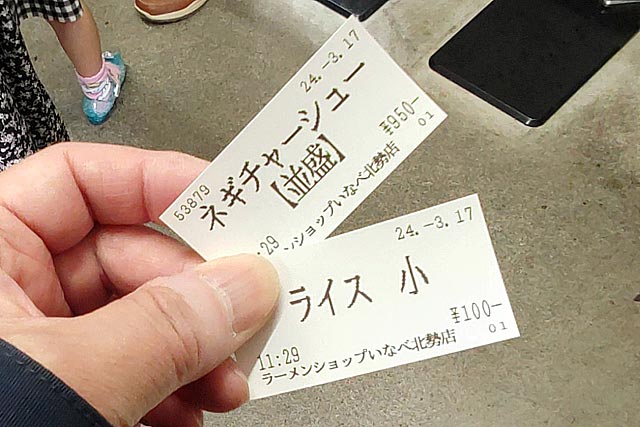 24.-3.17
ネギチャーシュー
【並盛】
¥950-
53879
01
:29
ーメンショップいなべ北勢店
24.-3.17
ライス 小
¥100-
11:29
01
ラーメンショップいなべ北勢店